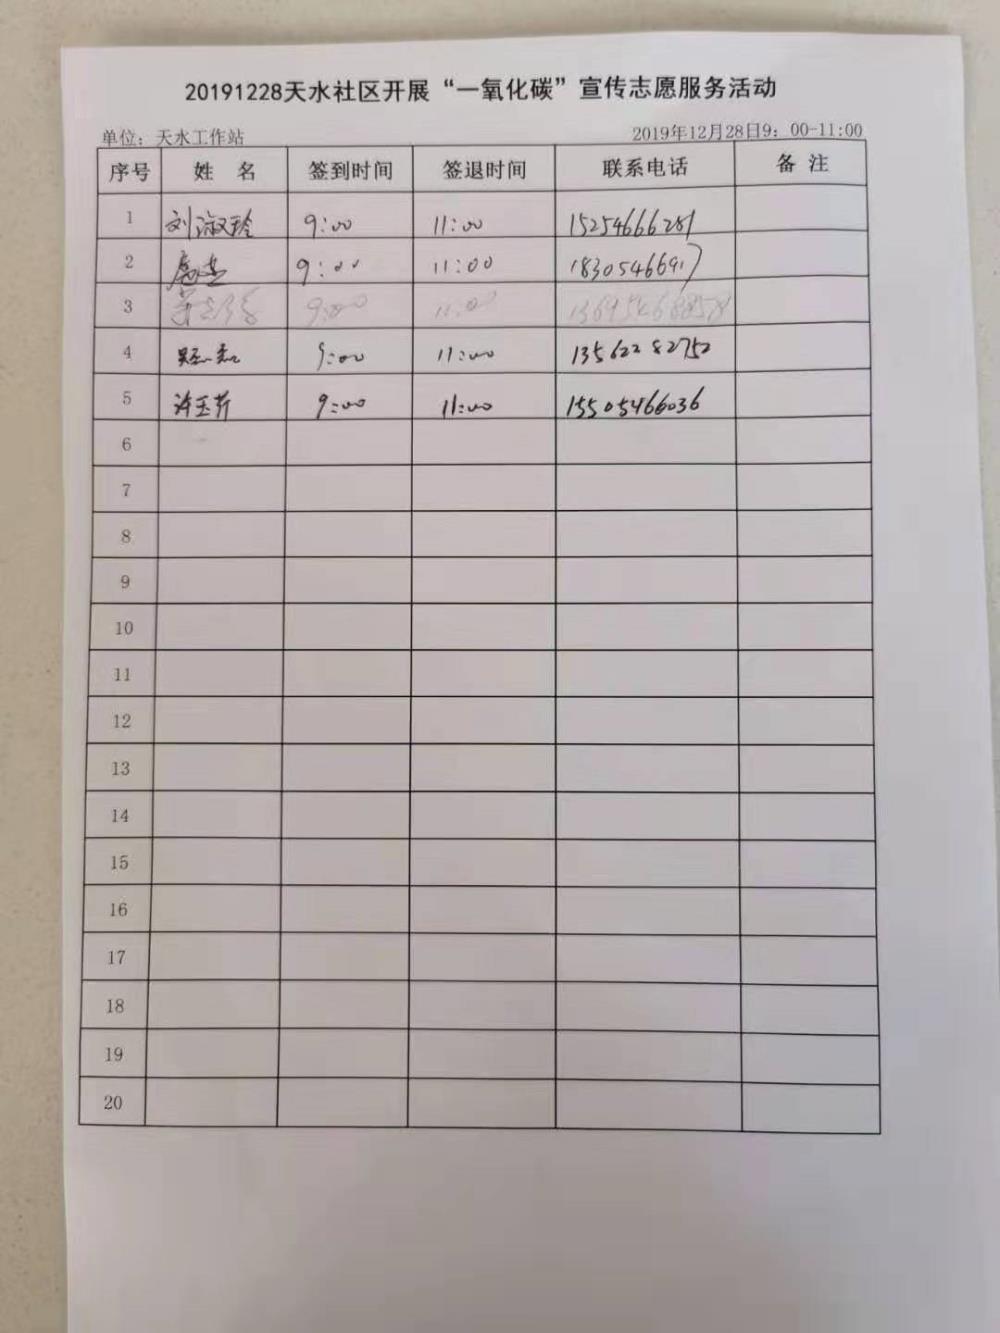 20191228天水社区开展“一氧化碳”宣传志愿服务活动
单位：天水工作站 2019年12月28日9：00-11:00
序号 姓 名 签到时间 签退时间 联系电话 备 注
1 刘淑玲 9:00 11:00 15254666281
2 9:00 11:00 18305466917
3 9:00 11:00 13695468858
4 9:00 11:00 13562282752
5 许玉芹 9:00 11:00 15505466036
6
7
8
9
10
11
12
13
14
15
16
17
18
19
20